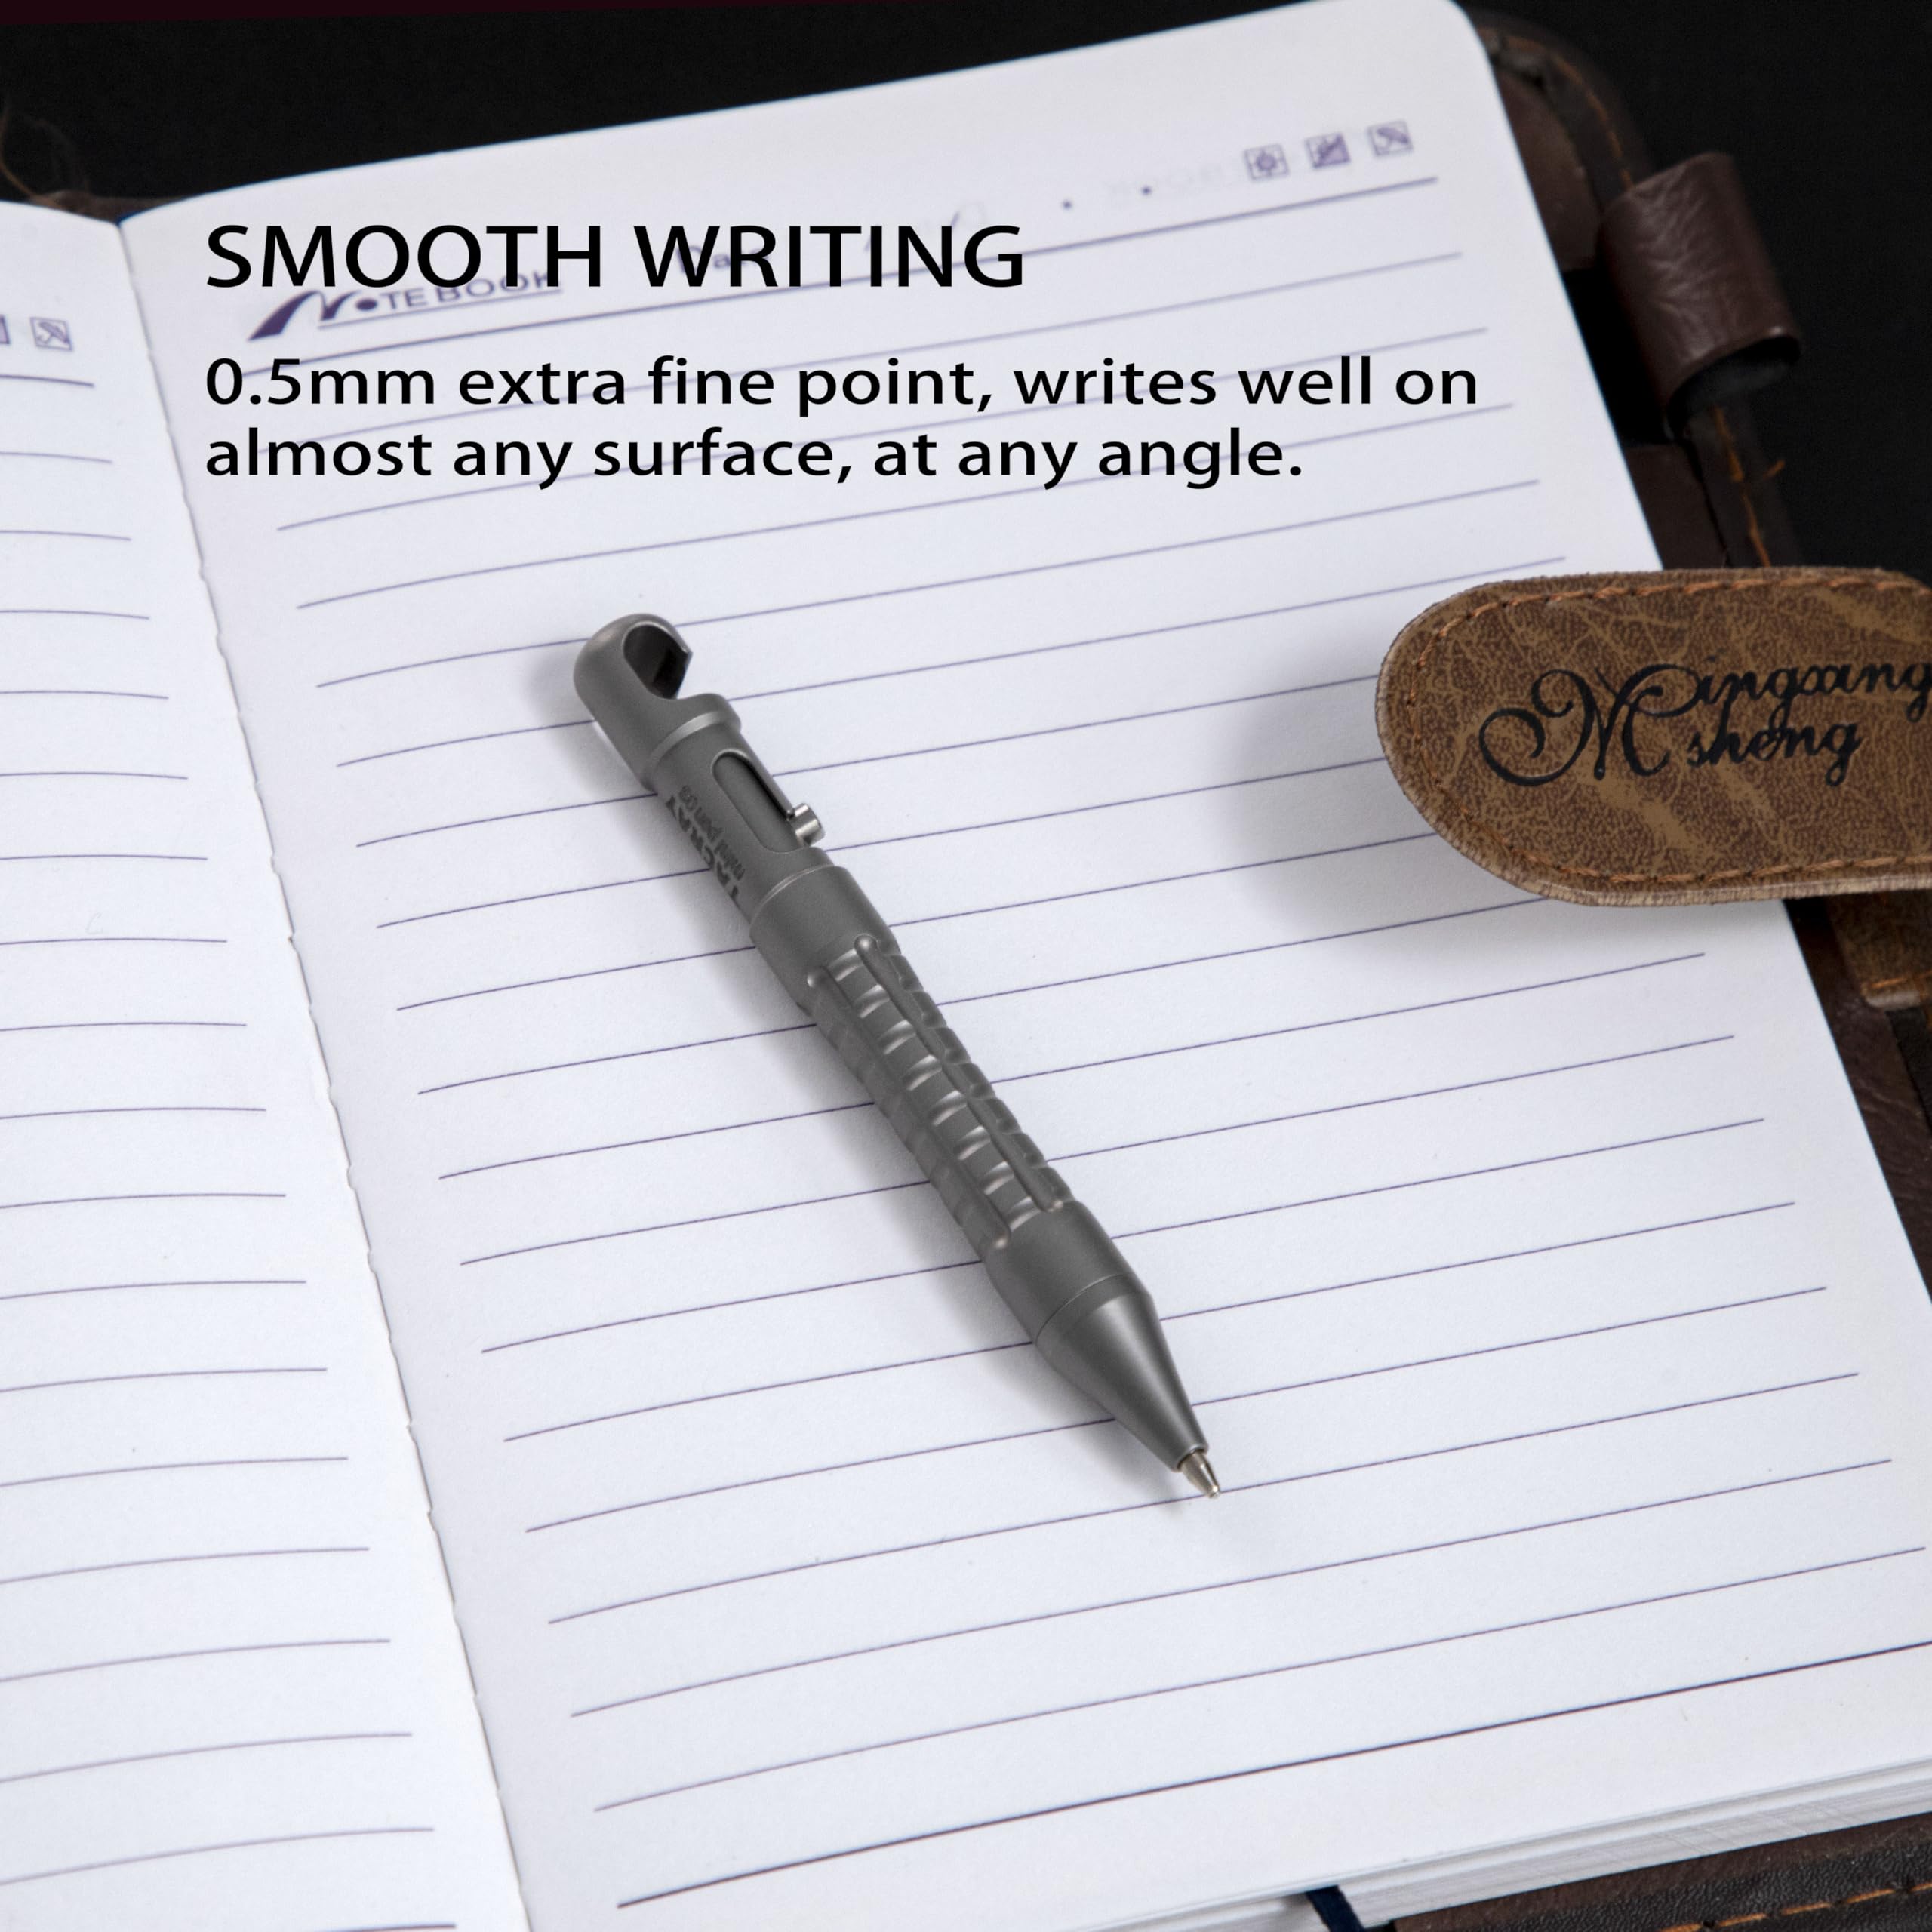 SMOOTH WRITING
NOTEBOOK
0.5mm extra fine point, writes well on
almost any surface, at any angle.
Mingxang
sheng